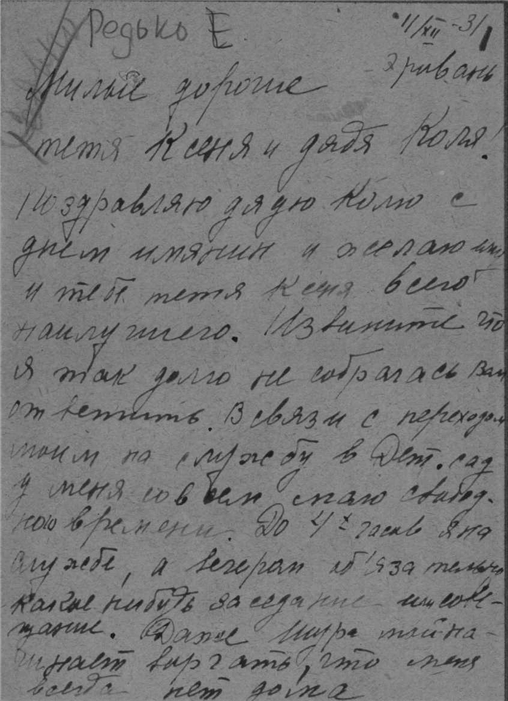 Редько Е.
11/XII -31
Эривань
Милые дорогие
тетя Ксеня и дядя Коля!
Поздравляю дядю Колю с
днем имянин и желаю ему
и тебе тетя Ксеня всего
наилучшего. Извините что
я так долго не собралась Вам
ответить. В связи с переходом
моим на службу в Дет. сад
у меня совсем мало свобод-
ного времени. До 4х часов я на
службе, а вечерам об'язательно
какое нибудь заседание или сове-
щание. Даже Шура мой на-
чинает ворчать, что меня
всегда нет дома